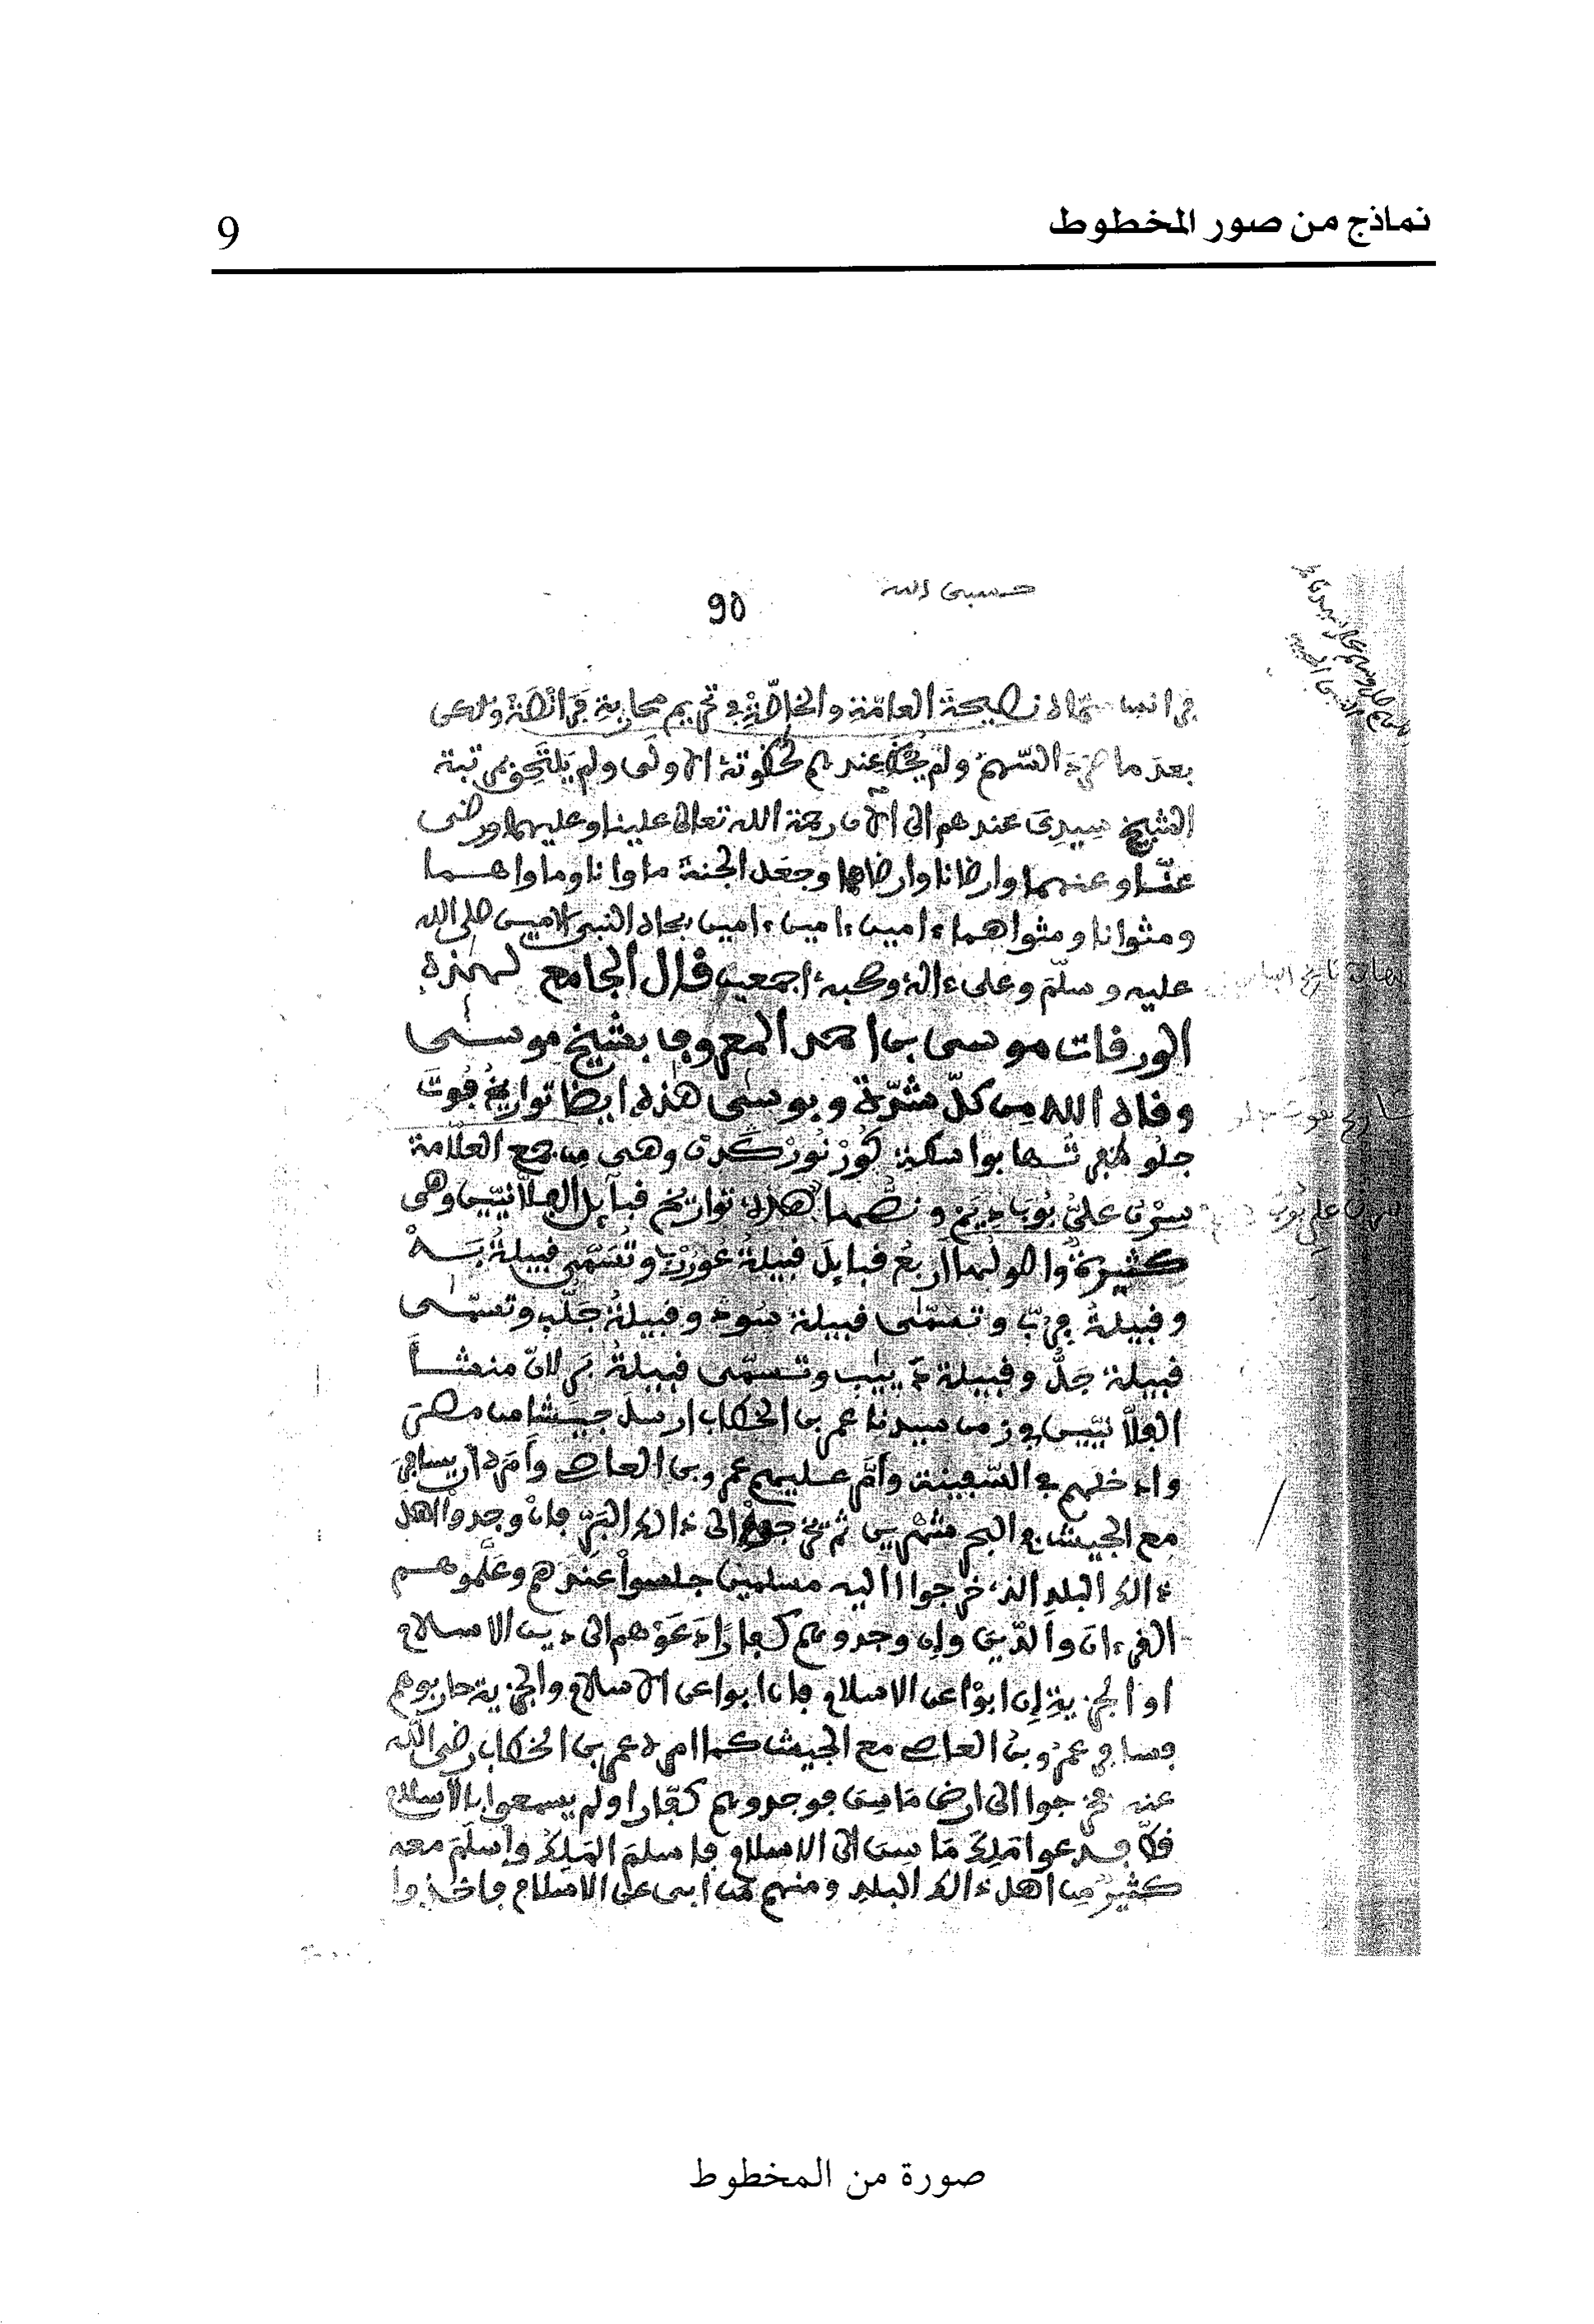 نماذج من صور المخطوط
9
حسبي الله
90
نصيحة العامة والخاصة في تحريم محاربة فرانصة
بعد ما ولم عندهم الاولى ولم
الشيخ سيدي عندهم الى الان رحمة الله تعالى علينا وعليهما ورضى
عنّا وعنهما وارضانا وارضاهما وجعل الجنة ماوانا وماواهما
ومثوانا ومثواهما ءامين ءامين ءامين بجاه النبي الامين صلى الله
عليه وسلّم وعلى ءاله وصحبه اجمعين قال الجامع لهذه
الورقات موسى بن احمد المعروف بشيخ موسى
وقاه الله من كلّ شرّة وبوسى هذه ايضا تواريخ فوت
جلو وهي من جمع العلّامة
سرن علي بوب ونصّها هذه تواريخ قبايل الفلّانيّين وهي
كثيرة واصولها اربع قبايل قبيلة وتسمّى قبيلة بــه
وقبيلة وتسمّى قبيلة سوء وقبيلة جلب وتسمّى
قبيلة جلّ وقبيلة وتسمّى قبيلة منشــأ
الفلّانيّين في زمن سيدنا عمر بن الخطاب ارسل جيشا من مصر
وادخلهم في السّفينة وأمّر عليهم عمرو بن العاص وأمره ان يسافر
مع الجيش في البحر شهرين ثم يخرجوا الى ذالك البرّ فان وجدوا اهل
ذالك البلد الذي خرجوا اليه مسلمين جلسوا عندهم وعلّموهم
القرءان والدّين وإن وجدوهم كفارا دعوهم الى دين الاسلام
او الجزية إن ابوا عن الاسلام فان ابوا عن الاسلام والجزية حاربوهم
فسافر عمرو بن العاص مع الجيش كما امره عمر بن الخطاب رضي الله
عنه فخرجوا الى ارض ماسن فوجدوهم كفّارا ولم يسمعوا بالاسلام
قطّ فدعوا ملك ماسن الى الاسلام فاسلم الملك وأسلم معه
كثير من اهل ذالك البلد ومنهم من ابى عن الاسلام فاخذوا
صورة من المخطوط